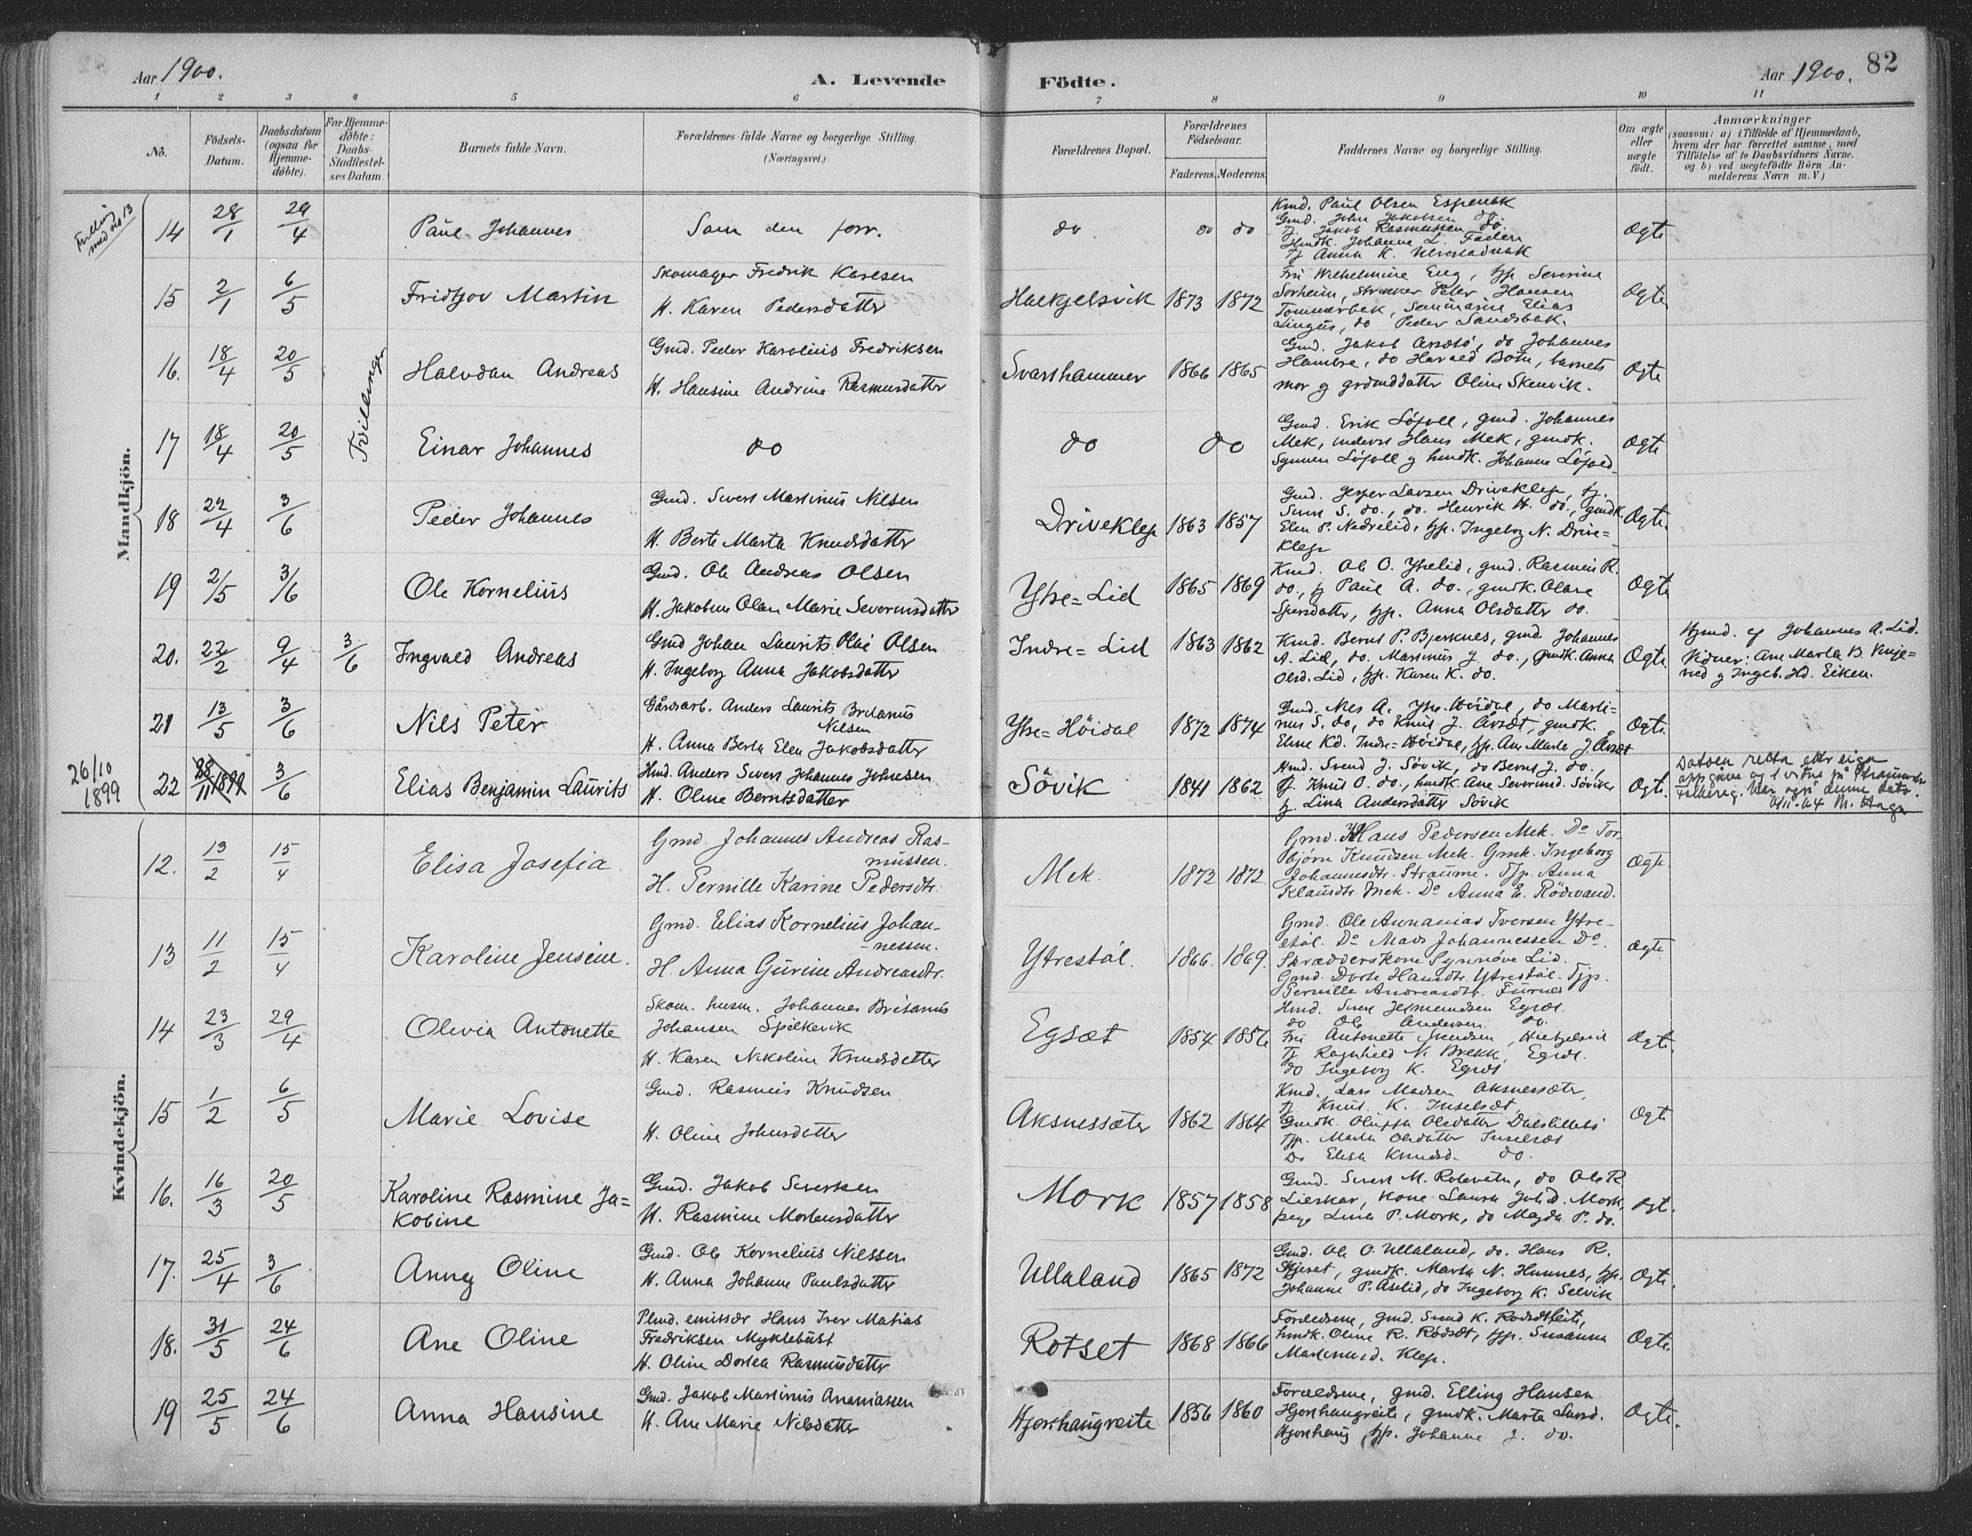 Aar 1900. A. Levende Födte. Aar 1900. 82
1 2 3 4 5 6 7 8 9 10 11
No. Födsels-Datum. Daabsdatum (ogsaa for Hjemme-döbte). For Hjemme-döbte: Daabs-Stadfæstel-ses Datum. Barnets fulde Navn. Forældrenes fulde Navne og borgerlige Stilling. (Næringsvei.) Forældrenes Bopæl. Forældrenes Födselsaar. Faderens. Moderens. Faddernes Navne og borgerlige Stilling. Om ægte eller uægte födt. Anmærkninger (saasom: a) i Tilfælde af Hjemmedaab, hvem der har forrettet samme, med Tilföielse af to Daabsvidners Navne, og b) ved uægtefödte Börn An-melderens Navn m. V.)
Mandkjön.
Tvilling med No 13
14 28/1 29/4 Paul Johannes Som den forr. do do do
Kmd. Paul Olsen Espenak
Gmd. John Jakobsen do.
Tj. Jakob Rasmussen do.
Tj. Anna K.
Ægte
15 2/1 6/5 Fridtjov Martin
Skomager Fredrik Karlsen
H. Karen Pedersdatter
Halkjelsvik 1873 1872
Fru Wilhelmine Eng, tjp. Severine
Sørheim, Peter Hansen
Seminarist Elias
do Peder Sandsbak.
Ægte
16. 18/4 20/5 Tvillinger Halvdan Andreas
Gmd. Peder Karolius Fredriksen
H. Hansine Andrine Rasmusdatter
Svarthammer 1866 1865
Gmd. Jakob Aasetø, do Johannes
Hambre, do Harald Botn, barnets
mor g grdmddatter Oline Skenvik.
Ægte
17 18/4 20/5 Einar Johannes do do do
Gmd. Erik Løfoll, gmd. Johannes
Mek, inderst Hans Mek, gmdk.
Synnen Løfoll g hmdk. Johanne Løfoll
Ægte
18 22/4 3/6 Peder Johannes
Gmd. Sivert Martinus Nilsen
H. Berte Marta Knudsdatter
Driveklep 1863 1857
Gmd. Jesper Larsen Driveklep, tj.
Sivert S. do., do. Henrik H. do., gmdk.
Elen P. Nedrelid, tjp. Ingeborg N. Drive=
klep
Ægte.
19 2/5 3/6 Ole Kornelius
Gmd. Ole Andreas Olsen
H. Jakobine Olave Marie Severinsdatter
Ytre=Lid 1865 1869
Kmd. Ole O. Ytrelid, gmd. Rasmus R.
do., tj Paul A. do., gmdk. Olave
Sjursdatter, tjp. Anna Olsdatter do.
Ægte
20. 22/2 9/4 3/6 Ingvald Andreas
Gmd Johan Laurits Olai Olsen
H. Ingeborg Anna Jakobsdatter
Indre=Lid 1863 1862
Kmd. Bernt P. Bjerknes, gmd Johannes
A. Lid, do. Martinus J. do., gmdk. Anna
Olsd. Lid, tjp. Karen K. do.
Ægte.
Hjmd. af Johannes A. Lid.
Vidner: Ane Marta B. Vinje=
ved g Ingeb. Hd. Eiken.
21 13/5 3/6 Nils Peter
Gårdarb. Anders Laurits Britanus
Nilsen
H. Anna Berta Elen Jakobsdatter
Ytre=Höidal 1872 1874
Gmd. Nils A. Ytre-Höidal, do Marti=
nus S. do, do Knut J. Aasæt, gmdk.
Eline Kd. Indre=Höidal, tjp. Ane Marta J. Aasæt
Ægte.
26/10 1899 22 28/11 1899 3/6 Elias Benjamin Laurits
Hmd. Anders Sivert Johannes Johnsen
H. Oline Berntsdatter
Såvik 1841 1862
Hmd. Svend J. Såvik, do Bernt J. do.,
tj. Knut O. do., hmdk. Ane Severined. Såvik
tj. Lina Andersdatter Såvik
Ægte.
Datoen retta etter eiga
oppgåve og
Folkereg. har også denne dato.
4/11-64 M. Haga
Kvindekjön.
12. 13/2 15/4 Elisa Josefia.
Gmd. Johannes Andreas Ras-
mussen.
H. Pernille Karine Pedersdtr.
Mek. 1872 1872.
Gmd. Hans Pedersen Mek. Do Tor-
bjørn Knudsen Mek. Gmk. Ingeborg
Johannesdtr. Straume. Tjp. Anna
Klausdtr. Mek. Do Anna E. Rödvand.
Ægte
13 11/2 15/4 Karoline Jensine.
Gmd. Elias Kornelius Johan-
nessen.
H. Anna Gurine Andreasdtr.
Ytrestøl. 1866. 1869.
Gmd. Ole Annanias Iversen Ytre-
støl. Do Mads Johannessen Do.
Skrædderskone Synnöve Lid.
Gmd. Dorte Hansdtr. Ytrestøl. Tjp.
Pernille Andreasdtr. Furnes
Ægte.
14 23/3 29/4 Olivia Antonette
Skom. husm. Johannes Britanus
Johansen Spilkevik
H. Karen Nikoline Knudsdatter
Egsæt 1854 1856
do Ole Andersen do.
Fru Antonette
Tj Ragnhild N. Brekk, Egset.
do Ingeborg K. Egset
Ægte.
15 1/2 6/5 Marie Lovise
Gmd. Rasmus Knudsen
H. Oline Johnsdatter
Aksnessæter 1862 1864
Kmd. Lars Madsen Aksnessæter,
tj Knut K. Inselsæt
Gmdk Oluffa Olsdatter Dalslillebö
Tjp. Marta Olsdatter Inselsæt
Do Elisa Knudsd. do.
Ægte
16. 16/3 20/5 Karoline Rasmine Ja=
kobine
Gmd. Jakob Sivertsen
H. Rasmine Mortensdatter
Mork 1857 1858
Gmd. Sivert M. Rotevatn, do Ole R.
Lieskar, kone Laura Johd. Mork,
pige Lina P. Mork, do Magda P. do.
Ægt.
17. 25/4 3/6 Anny Oline
Gmd. Ole Kornelius Nilssen
H. Anna Johanne Paulsdatter
Ullaland 1865 1872
Gmd. Ole O. Ullaland, do. Hans R.
gmdk. Marta N. Hunnes, tjp.
Johanne P. Aslid, do Ingeborg K. Selvik
Ægte.
18. 31/5 24/6 Ane Oline
Plmd. emisær Hans Iver Matias
Fredriksen Myklebust
H. Oline Dortea Rasmusdatter
Rotset 1868 1866
Foreldrene, gmd. Svend K.
hmdk. Oline R. Rødsæt, tjp. Susanna
Martinusd. Klep.
Ægte.
19 25/5 24/6 Anna Hansine
Gmd. Jakob Martinus Ananiassen
H. Ane Marie Nilsdatter
Hjorthaugreite 1856 1860
Forældrene, gmd. Elling Hansen
Hjorthaugreite, gmdk. Marta Larsd.
Hjorthaug, tjp. Johanne J. do.
Ægte.